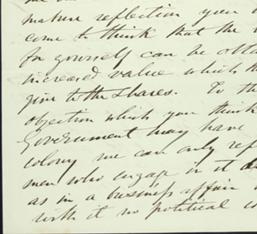 mature reflection your
come to think that the
for yourself can be obta
increased value which th
give to the shares. To th
objection which you think
Government may have
colony we can only ref
men who engage in it a
as in a business affair
with it no political co